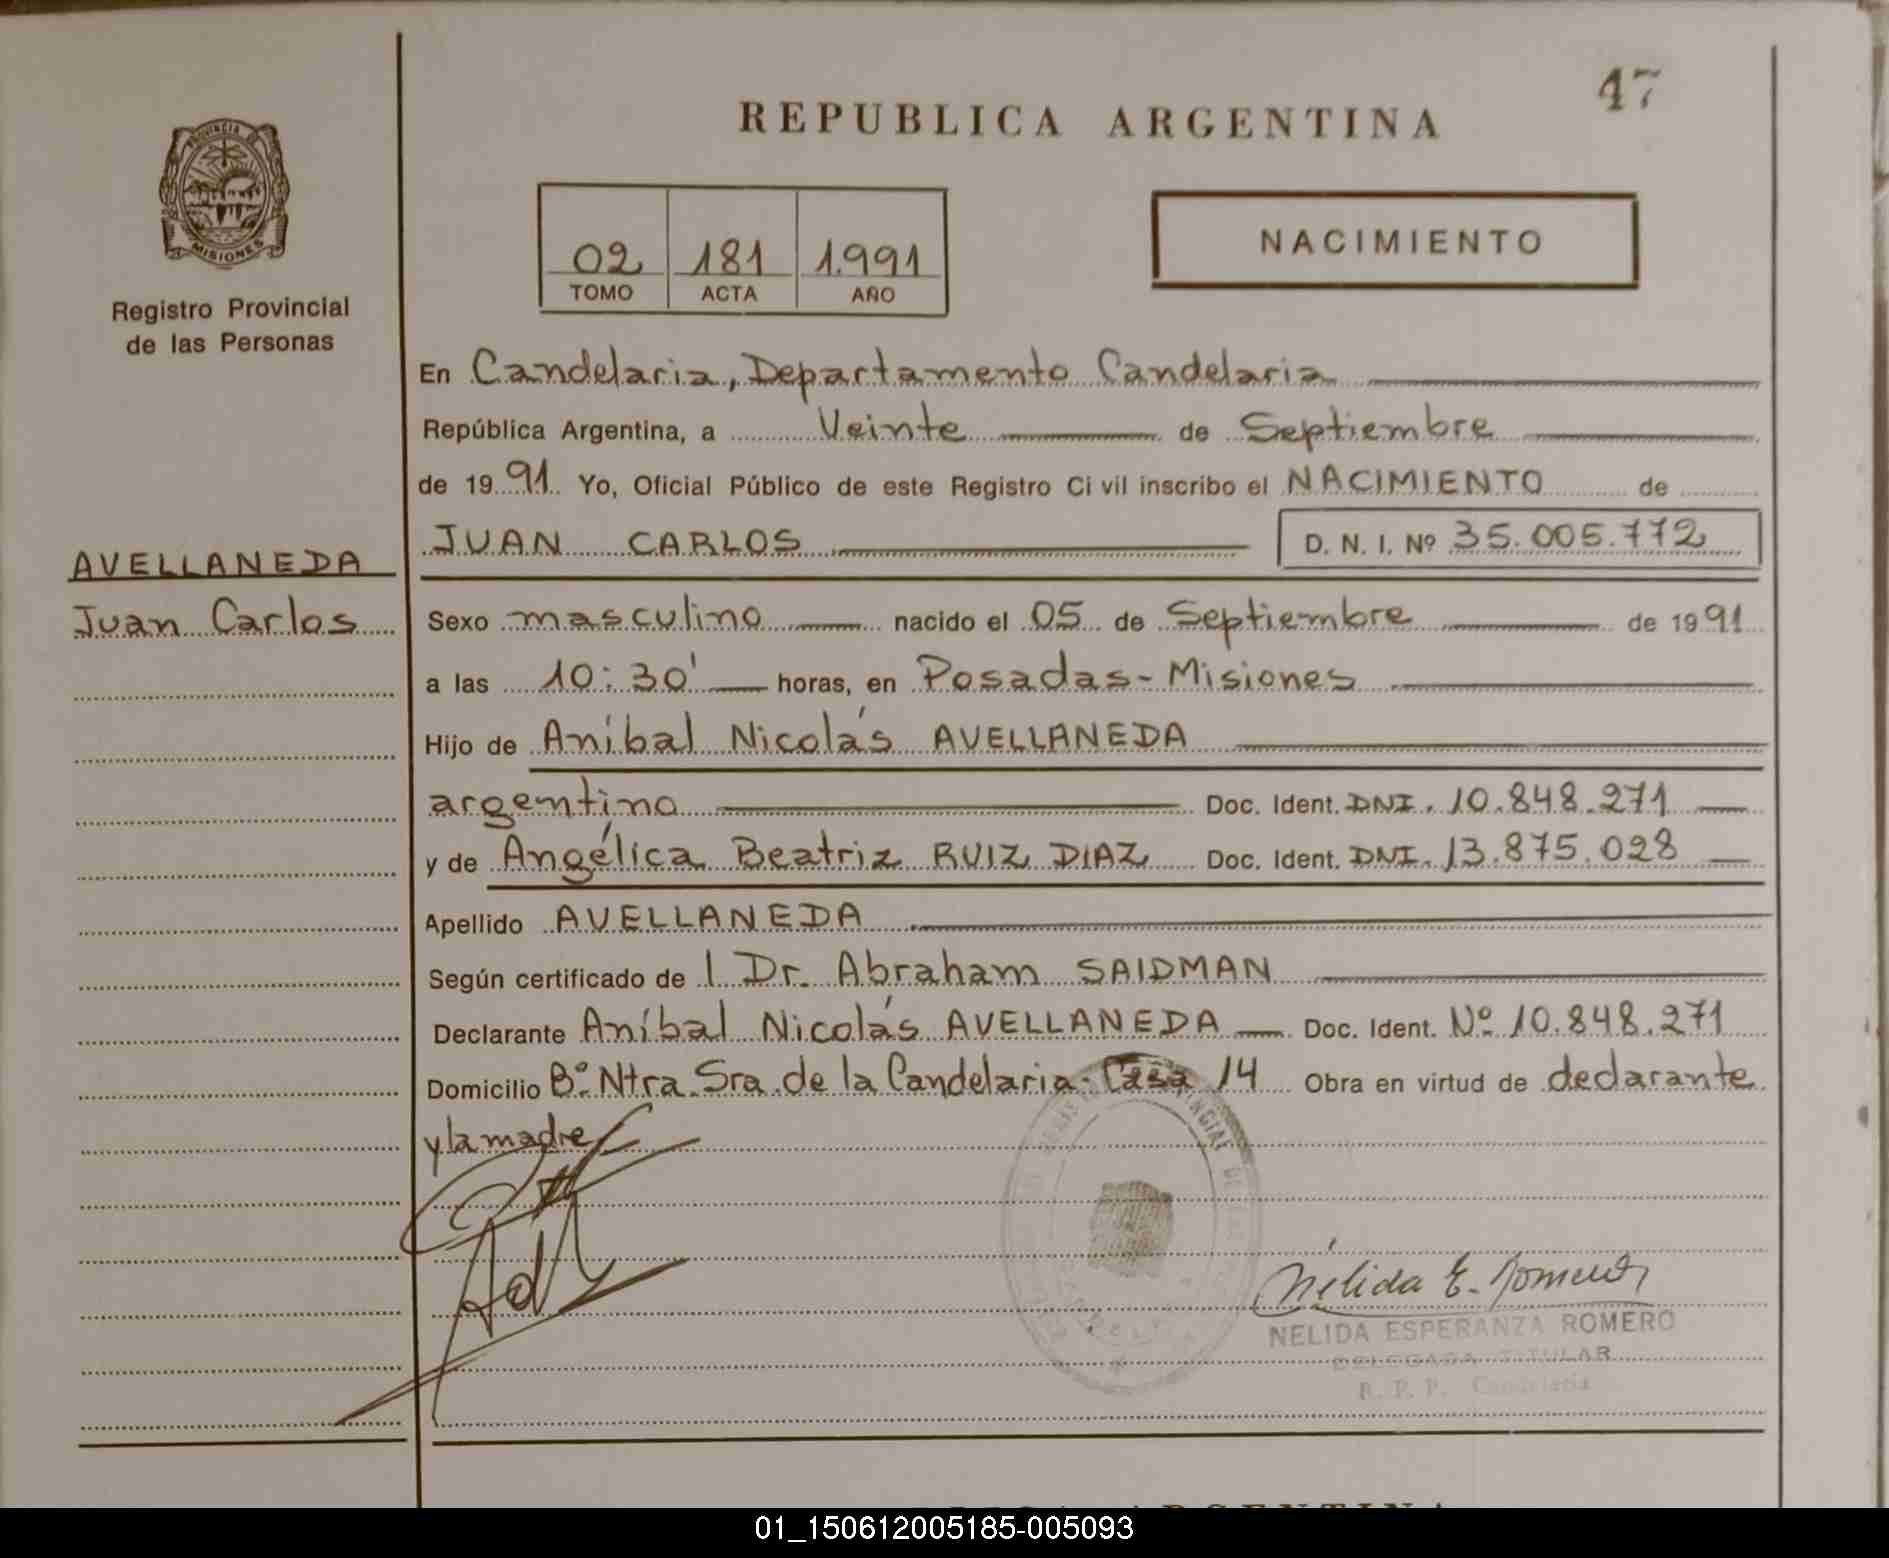 47
REPUBLICA ARGENTINA
PROVINCIA DE MISIONES
Registro Provincial
de las Personas
02 181 1.991
TOMO ACTA AÑO
NACIMIENTO
En Candelaria, Departamento Candelaria
República Argentina, a Veinte de Septiembre
de 1991 Yo, Oficial Público de este Registro Civil inscribo el NACIMIENTO de
JUAN CARLOS D. N. I. Nº 35.005.772
AVELLANEDA
Juan Carlos
Sexo masculino nacido el 05 de Septiembre de 1991
a las 10:30' horas, en Posadas-Misiones
Hijo de Aníbal Nicolás AVELLANEDA
argentino Doc. Ident. DNI. 10.848.271
y de Angélica Beatriz RUIZ DIAZ Doc. Ident. DNI. 13.875.028
Apellido AVELLANEDA
Según certificado de l Dr. Abraham SAIDMAN
Declarante Aníbal Nicolás AVELLANEDA Doc. Ident. Nº 10.848.271
Domicilio Bº Ntra. Sra. de la Candelaria- Casa 14 Obra en virtud de declarante
y la madre
Nélida E. Romero
NELIDA ESPERANZA ROMERO
DELEGADA TITULAR
R. P. P. Candelaria
01_150612005185-005093